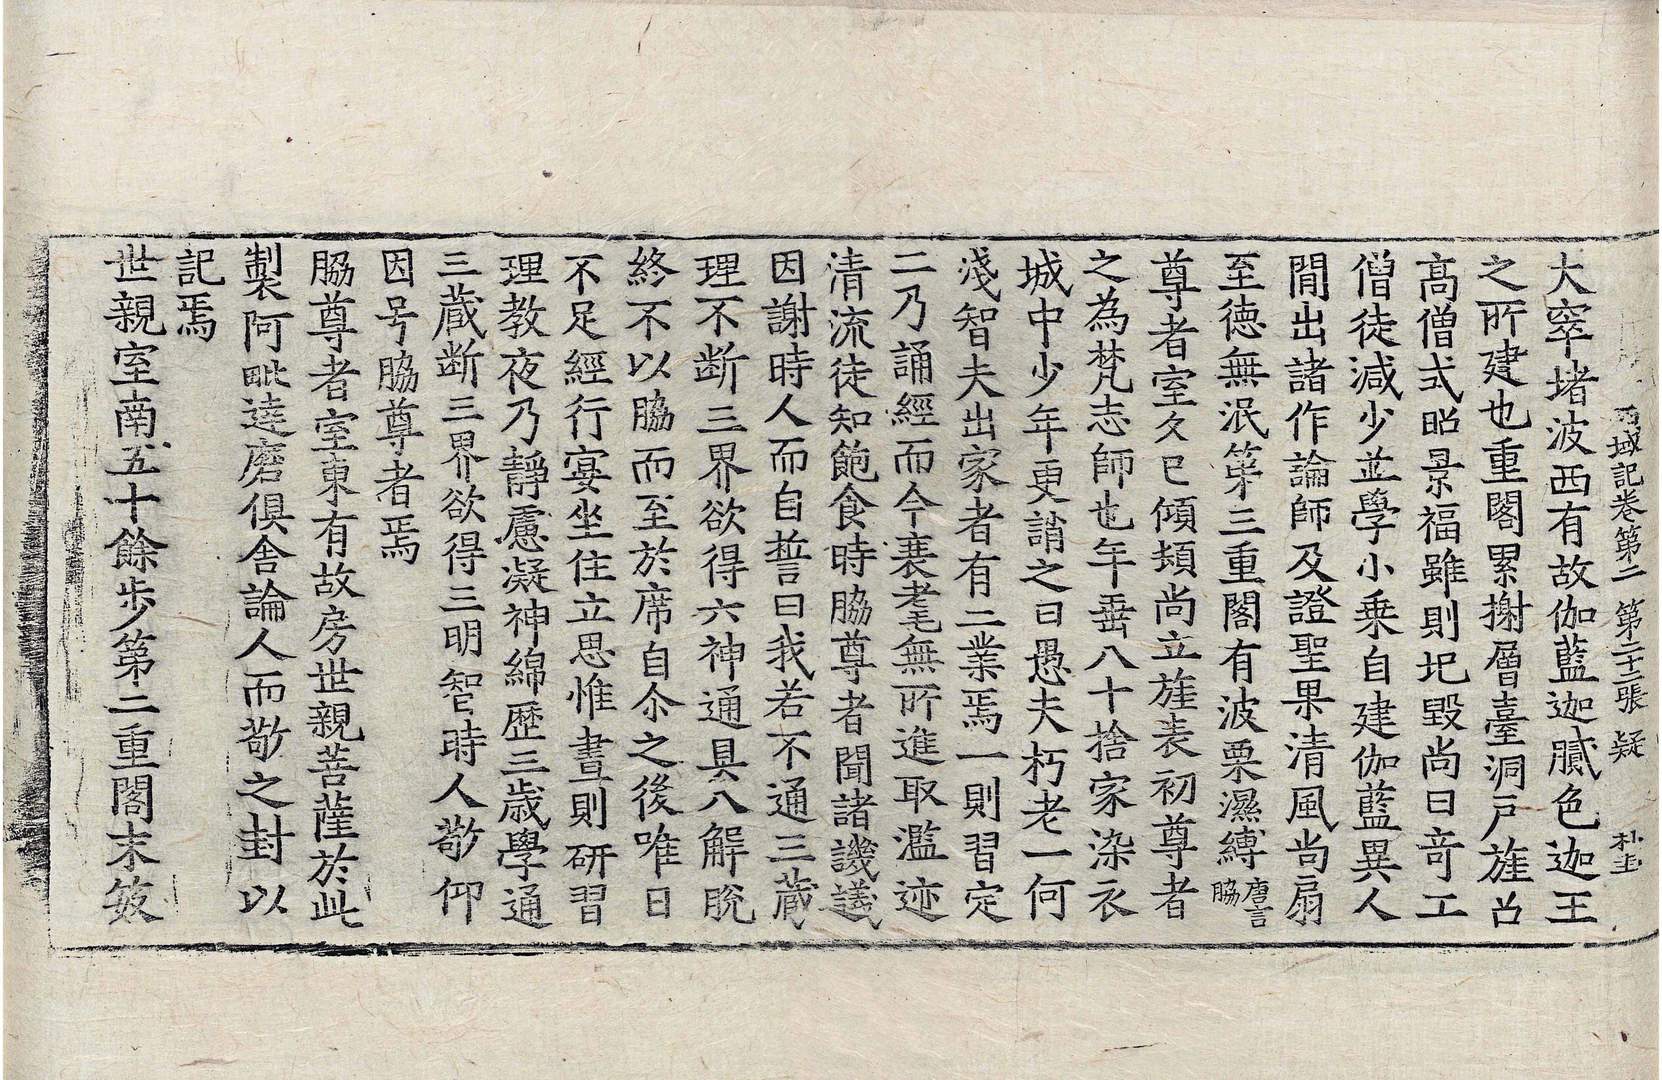 西域記卷第二 第二十二張 疑 朴圭
大窣堵波西有故伽藍迦膩色迦王
之所建也重閣累榭層臺洞戶旌召
高僧式昭景福雖則圮毀尚曰竒工
僧徒減少並學小乗自建伽藍異人
閒出諸作論師及證聖果清風尚扇
至德無泯第三重閣有波栗濕縛唐言脇
尊者室久已傾頹尚立旌表初尊者
之為梵志師也年垂八十捨家染衣
城中少年更誚之曰愚夫朽老一何
淺智夫出家者有二業焉一則習定
二乃誦經而今衰耄無所進取濫迹
清流徒知飽食時脇尊者聞諸譏議
因謝時人而自誓曰我若不通三藏
理不断三界欲得六神通具八解脫
終不以脇而至於席自尒之後唯日
不足經行宴坐住立思惟晝則研習
理教夜乃靜慮凝神綿歷三歲學通
三藏断三界欲得三明智時人敬仰
因号脇尊者焉
脇尊者室東有故房世親菩薩於此
製阿毗達磨俱舍論人而敬之封以
記焉
世親室南五十餘步第二重閣末笯